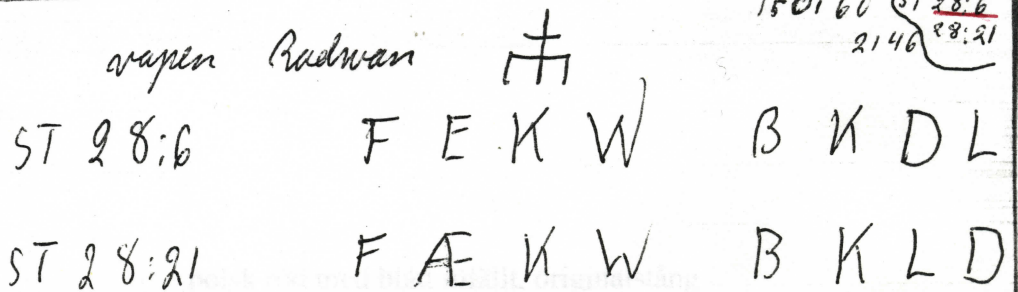 150160 ST 28:6
2146 28:21
vapen Radwan
ST 28:6 F E K W B K D L
ST 28:21 F Æ K W B K L D